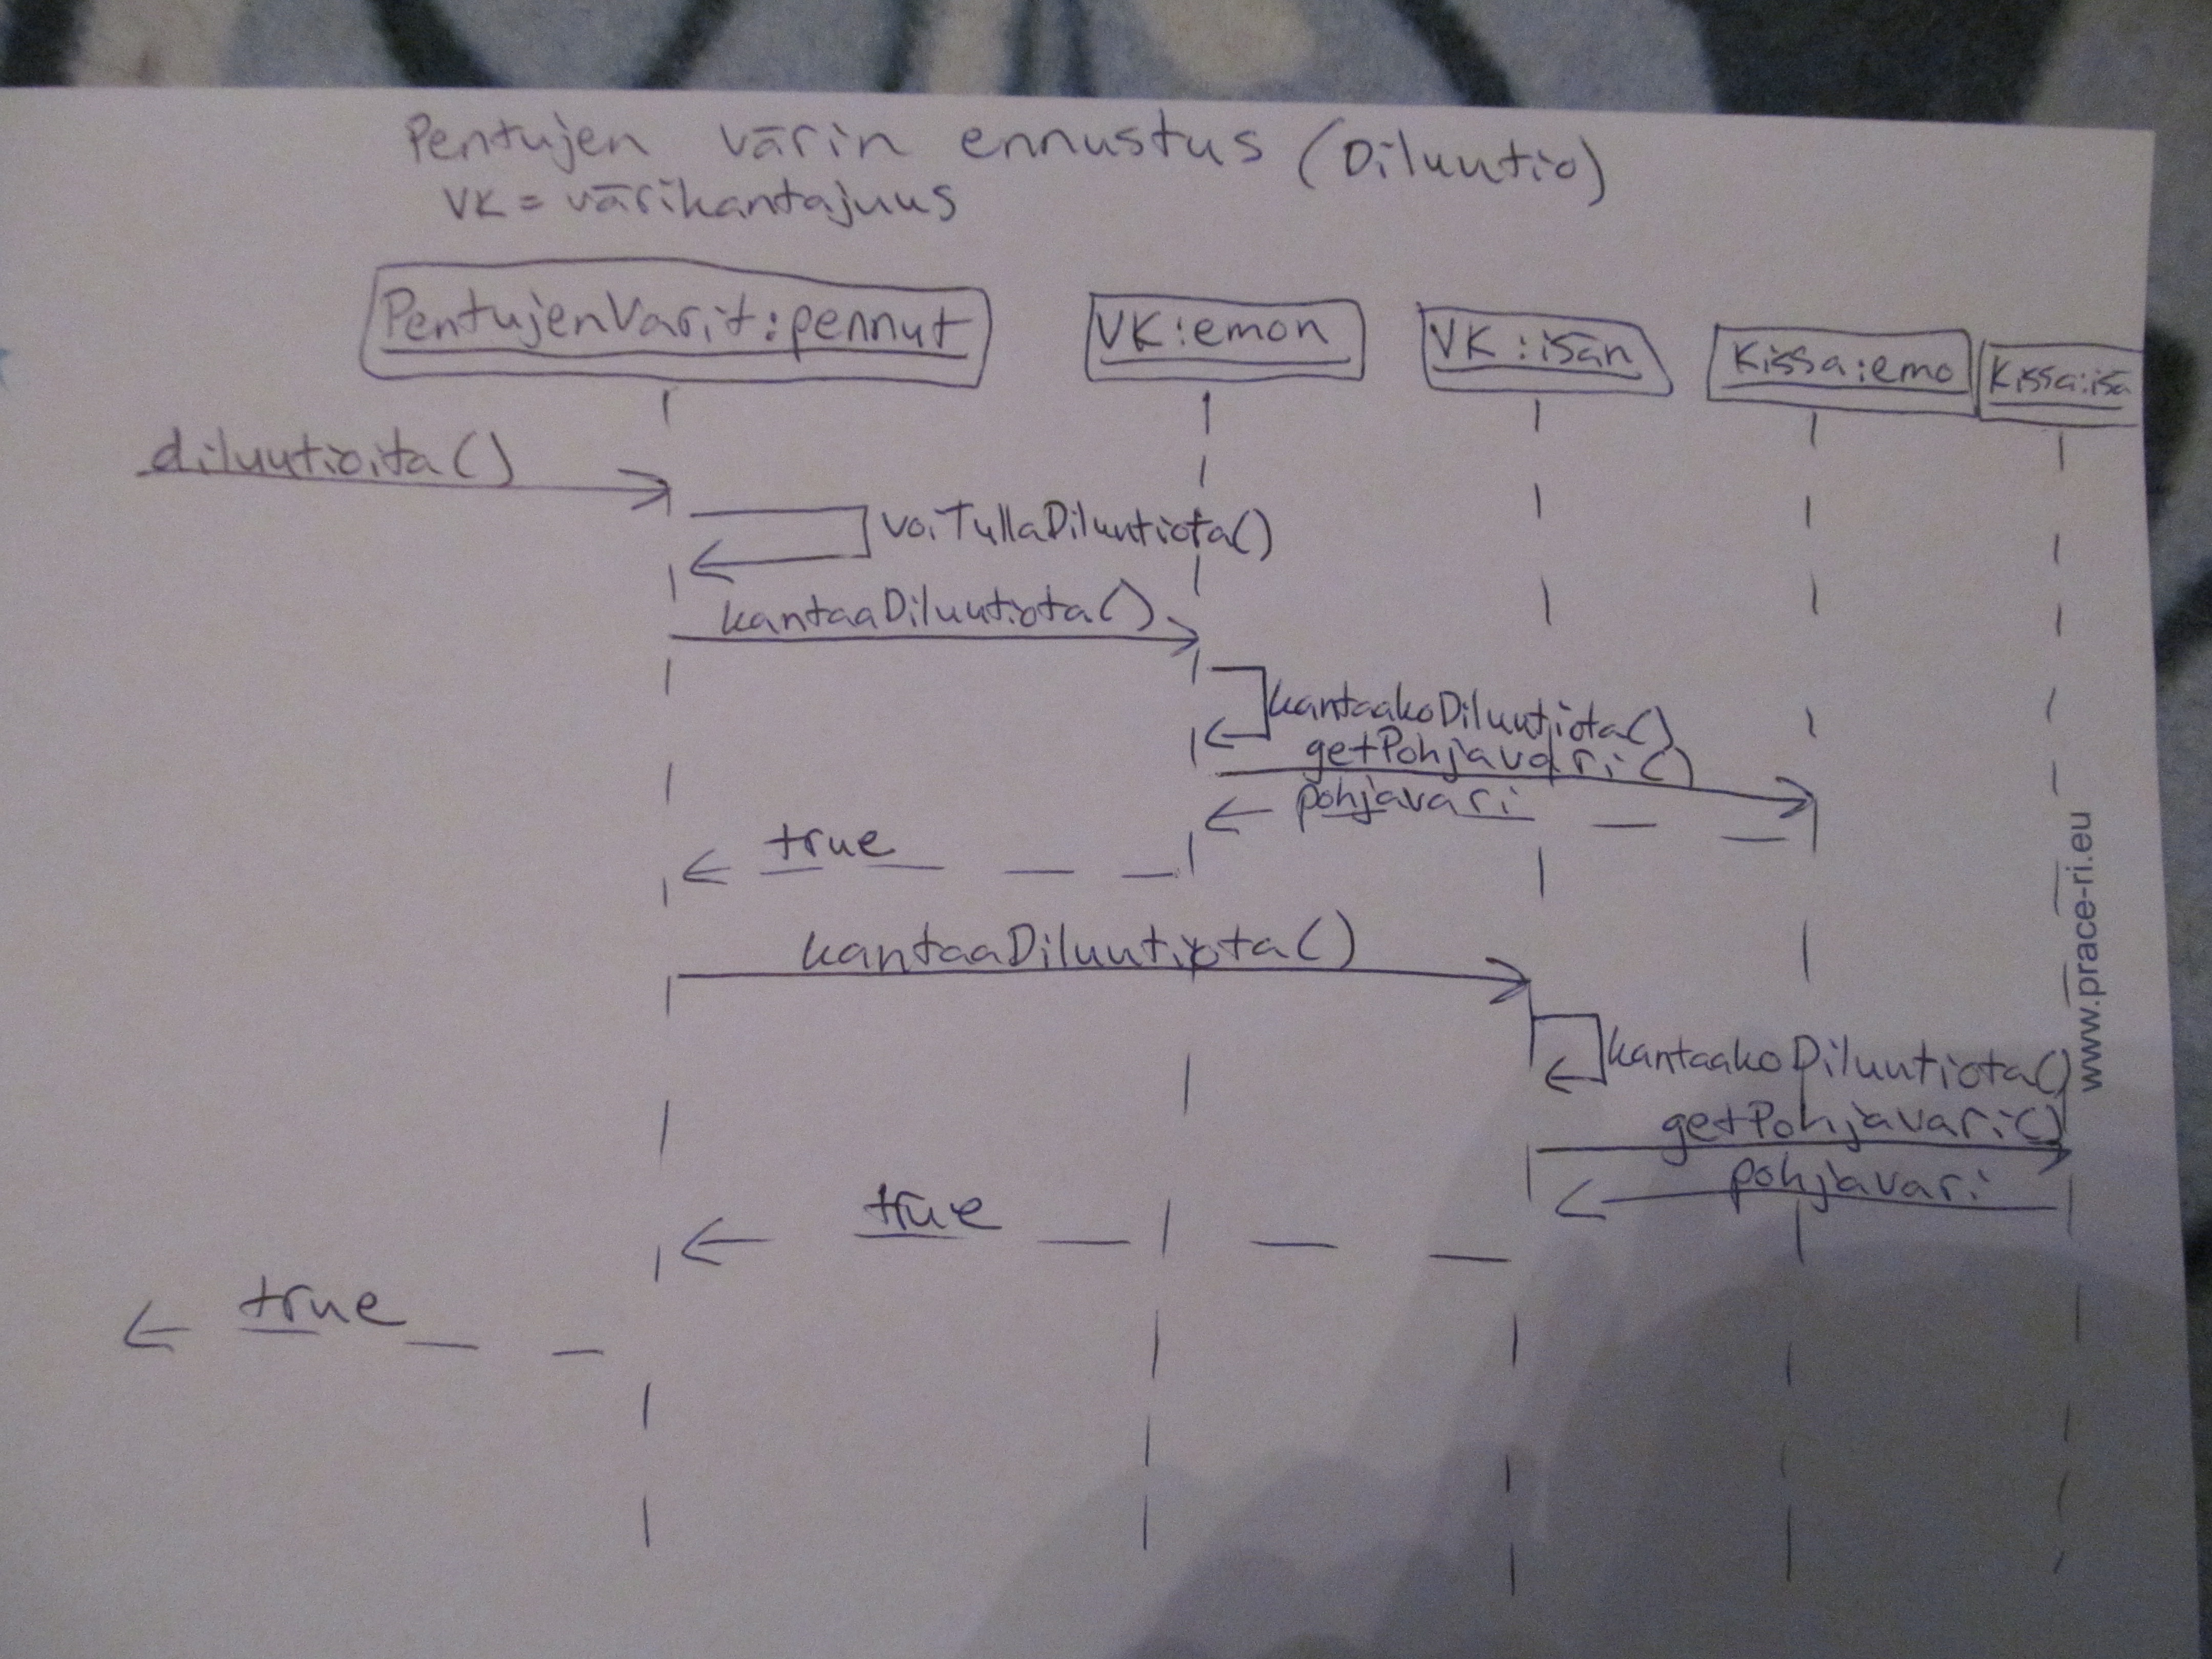 Pentujen värin ennustus (Diluutio)
VK = värikantajuus
PentujenVarit:pennut
VK:emon
VK:isän
Kissa:emo
Kissa:isä
diluutioita()
voiTullaDiluutiota()
kantaaDiluutiota()
kantaakoDiluutiota()
getPohjavari()
pohjavari
true
kantaaDiluutiota()
kantaakoDiluutiota()
getPohjavari()
pohjavari
true
true
www.prace-ri.eu